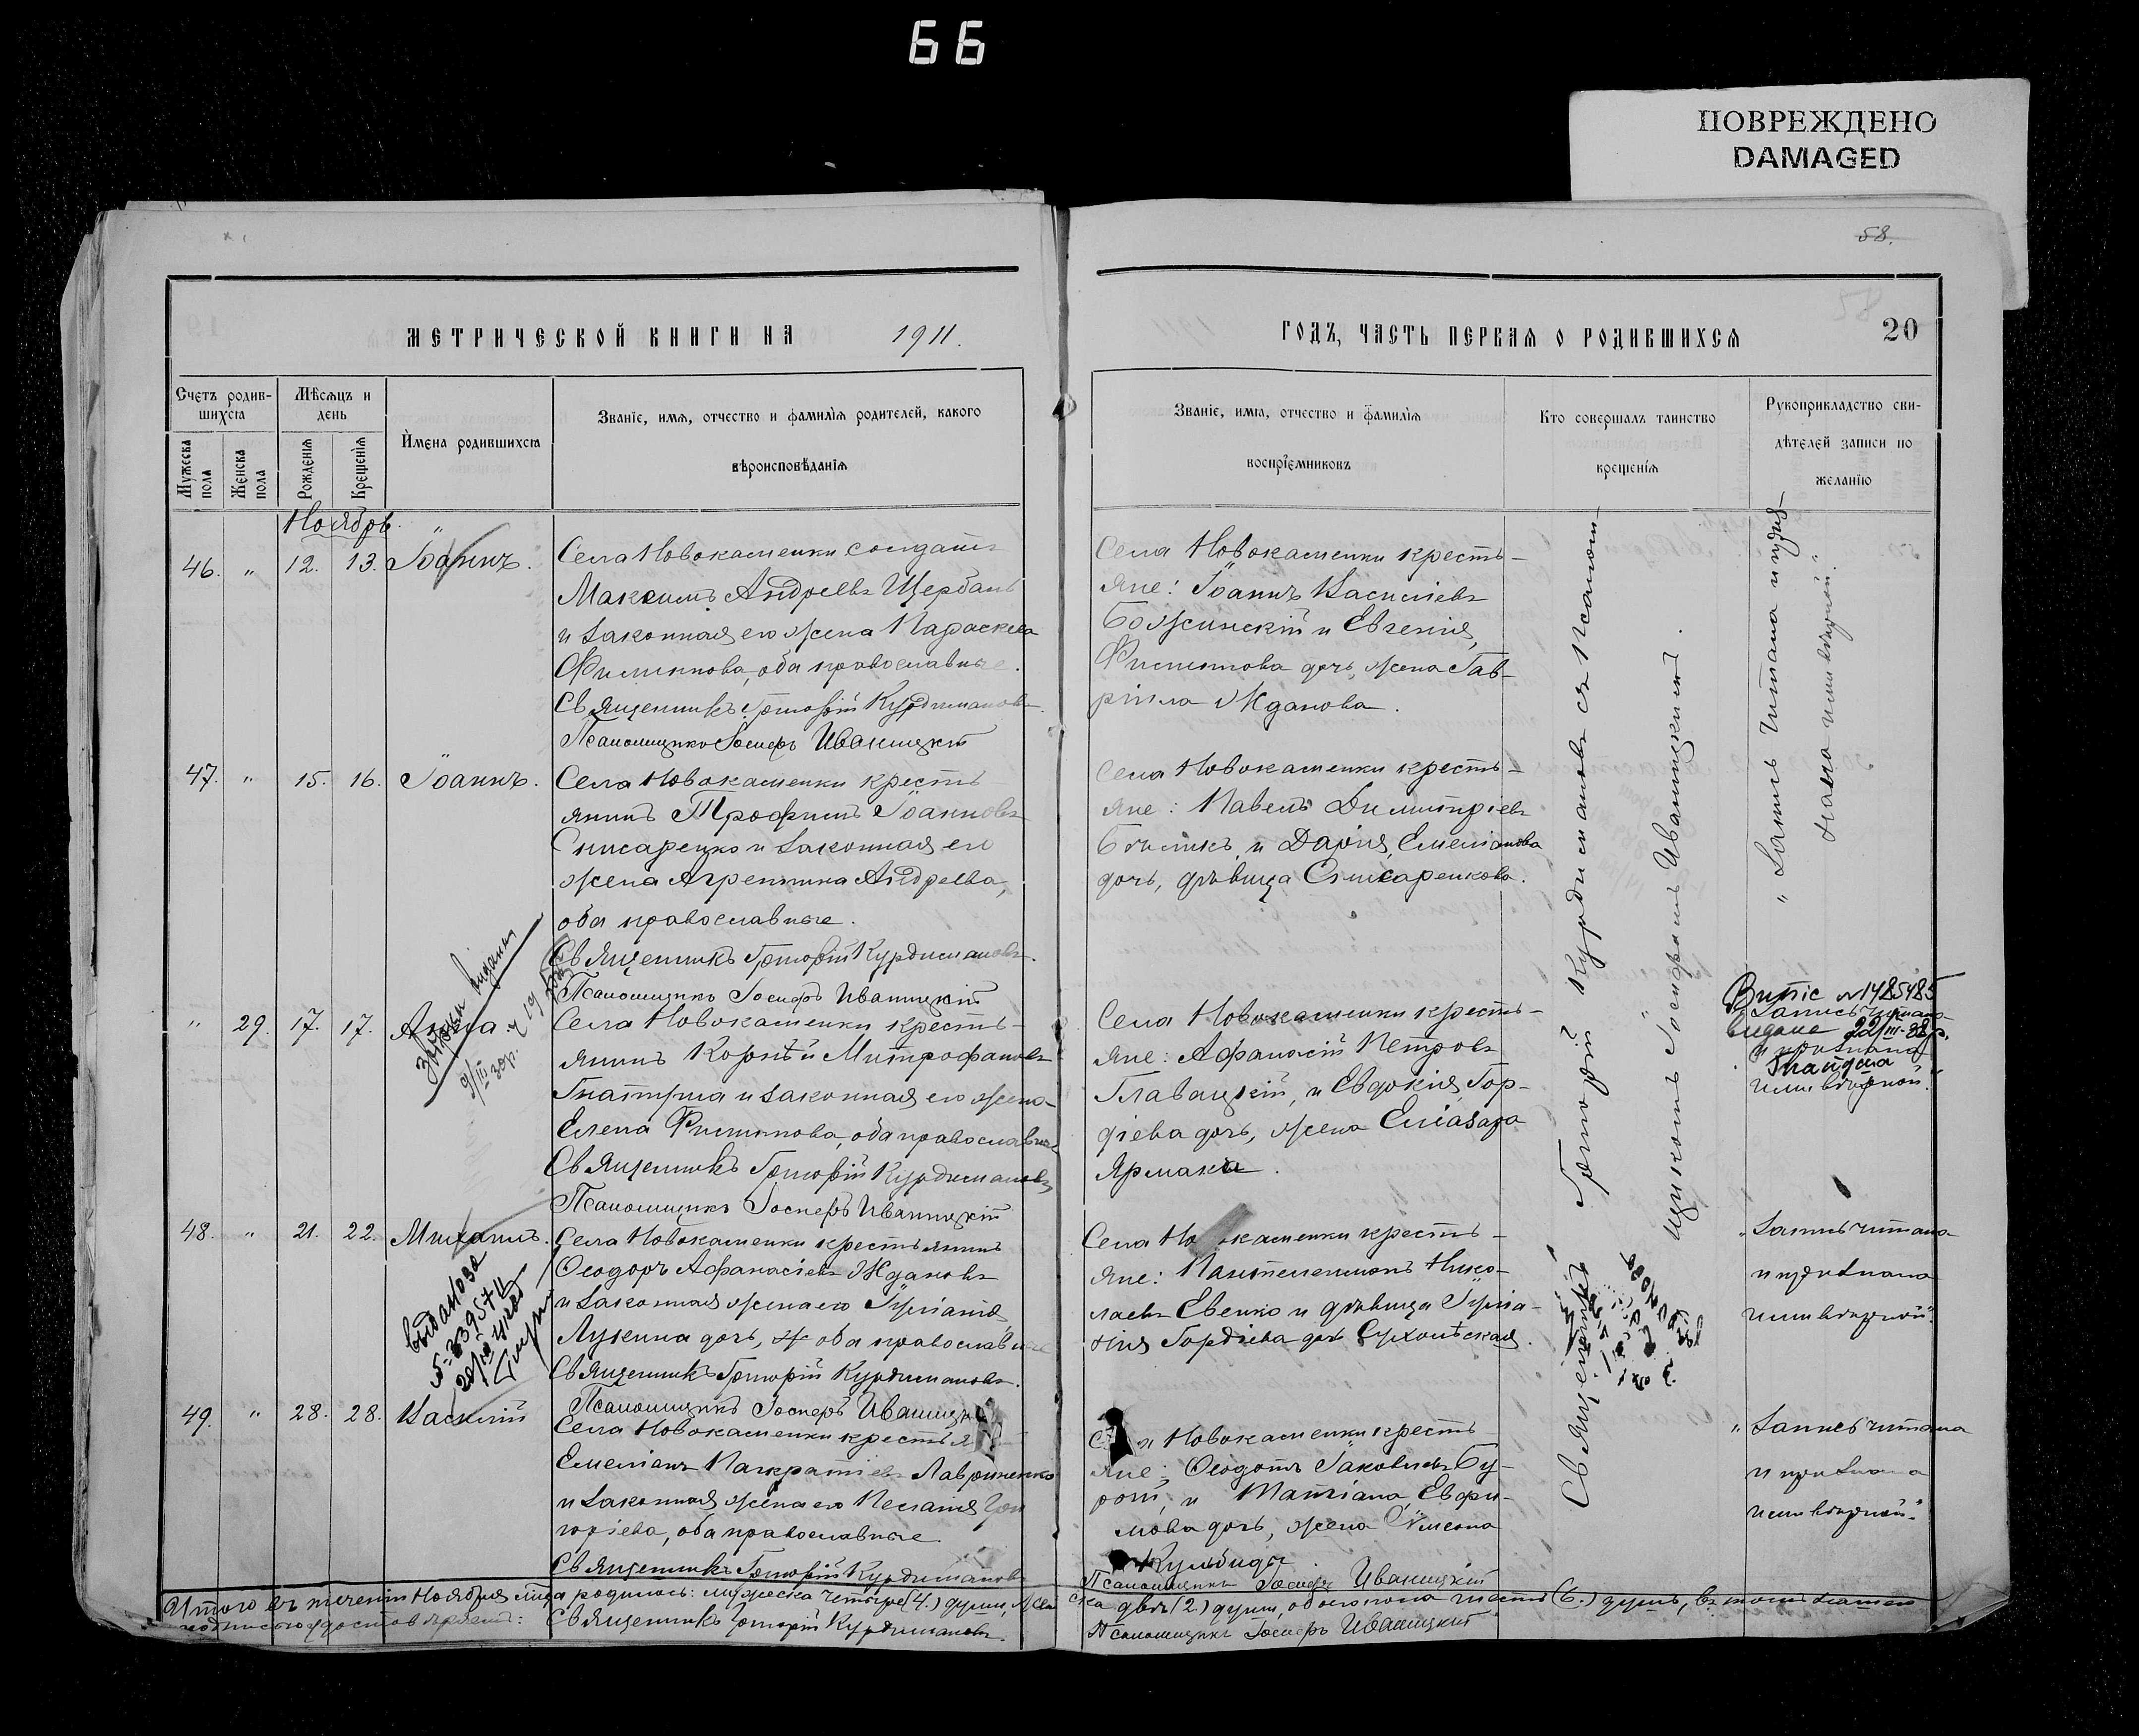 66
ПОВРЕЖДЕНО
DAMAGED
58.
58
МЕТРИЧЕСКОЙ КНИГИ НА 1911.
ГОДЪ, ЧАСТЬ ПЕРВАЯ О РОДИВШИХСЯ
20
Счетъ родившихся
Мужеска пола
Женска пола
Мѣсяцъ и день
Рожденія
Крещенія
Имена родившихся
Званіе, имя, отчество и фамилія родителей, какого
вѣроисповѣданія
Званіе, имя, отчество и фамилія
воспріемниковъ
Кто совершалъ таинство
крещенія
Рукоприкладство сви-
дѣтелей записи по
желанію
Ноябрь.
46. " 12. 13. Іоаннъ.
Села Новокаменки солдатъ
Максимъ Андреевъ Щербань
и законная его жена Параскева
Филиппова, оба православные.
Священникъ Григорій Курдимановъ.
Псаломщикъ Іосифъ Иваницкій
Села Новокаменки кресть-
яне: Іоаннъ Васильевъ
Божинскій и Евгенія,
Филиппова дочь, жена Гав-
ріила Жданова.
47. " 15. 16. Іоаннъ.
Села Новокаменки кресть
янинъ Трофимъ Іоанновъ
Снисаренко и законная его
жена Агриппина Андреева,
оба православные.
Священникъ Григорій Курдимановъ.
Псаломщикъ Іосифъ Иваницкій
Села Новокаменки кресть-
яне: Павелъ Димитріевъ
и Дарія, Емеліанова
дочь, дѣвица Снисаренкова.
" 29. 17. 17. Анна
Села Новокаменки кресть-
янинъ Корнѣй Митрофановъ
и законная его жена
Елена Филиппова, оба православные
Священникъ Григорій Курдимановъ
Псаломщикъ Іосифъ Иваницкій
Села Новокаменки кресть-
яне: Афанасій Петровъ
Главацкій, и Евдокія, Гор-
діева дочь, жена Еліазара
Ярмака.
Випис №1485485
видана 22/III-38р.
Запись читана
и признана
имъ вѣрной."
48. " 21. 22. Михаилъ.
Села Новокаменки крестьянинъ
Ѳеодоръ Афанасіевъ Ждановъ
и законная жена его Гуліанія,
Лукина дочь, оба православные
Священникъ Григорій Курдимановъ.
Псаломщикъ Іосифъ Иваницкій
Села Новокаменки кресть-
яне: Пантелеимонъ Нико-
лаевъ Евенко и дѣвица Гуліа-
нія Гордіева дочь.
"Запись читана
и признана
ими вѣрной".
49. " 28. 28. Василій
Села Новокаменки крестья
Емеліанъ Панкратіевъ Лавриненко
и законная жена его Пелагія Гри
горіева, оба православные.
Священникъ Григорій Курдимановъ
Новокаменки кресть
яне: Ѳеодотъ Іаковлевъ Бу-
рой, и Татіана, Евфи-
мова дочь, жена Симеона
Кульбиды.
Псаломщикъ Іосифъ Иваницкій
"Запись читана
и признана
ими вѣрной".
Священникъ Григорій Курдимановъ съ псалом-
щикомъ Іосифомъ Иваницкимъ.
"Запись читана и приз-
нана ими вѣрной."
Итого въ теченіи Ноября м-ца родилось: мужеска четыре (4.) души, жен
ска двѣ (2.) души, обоего пола шесть (6.) душъ, въ томъ
подписью удостовѣряемъ: Священникъ Григорій Курдимановъ.
Псаломщикъ Іосифъ Иваницкій